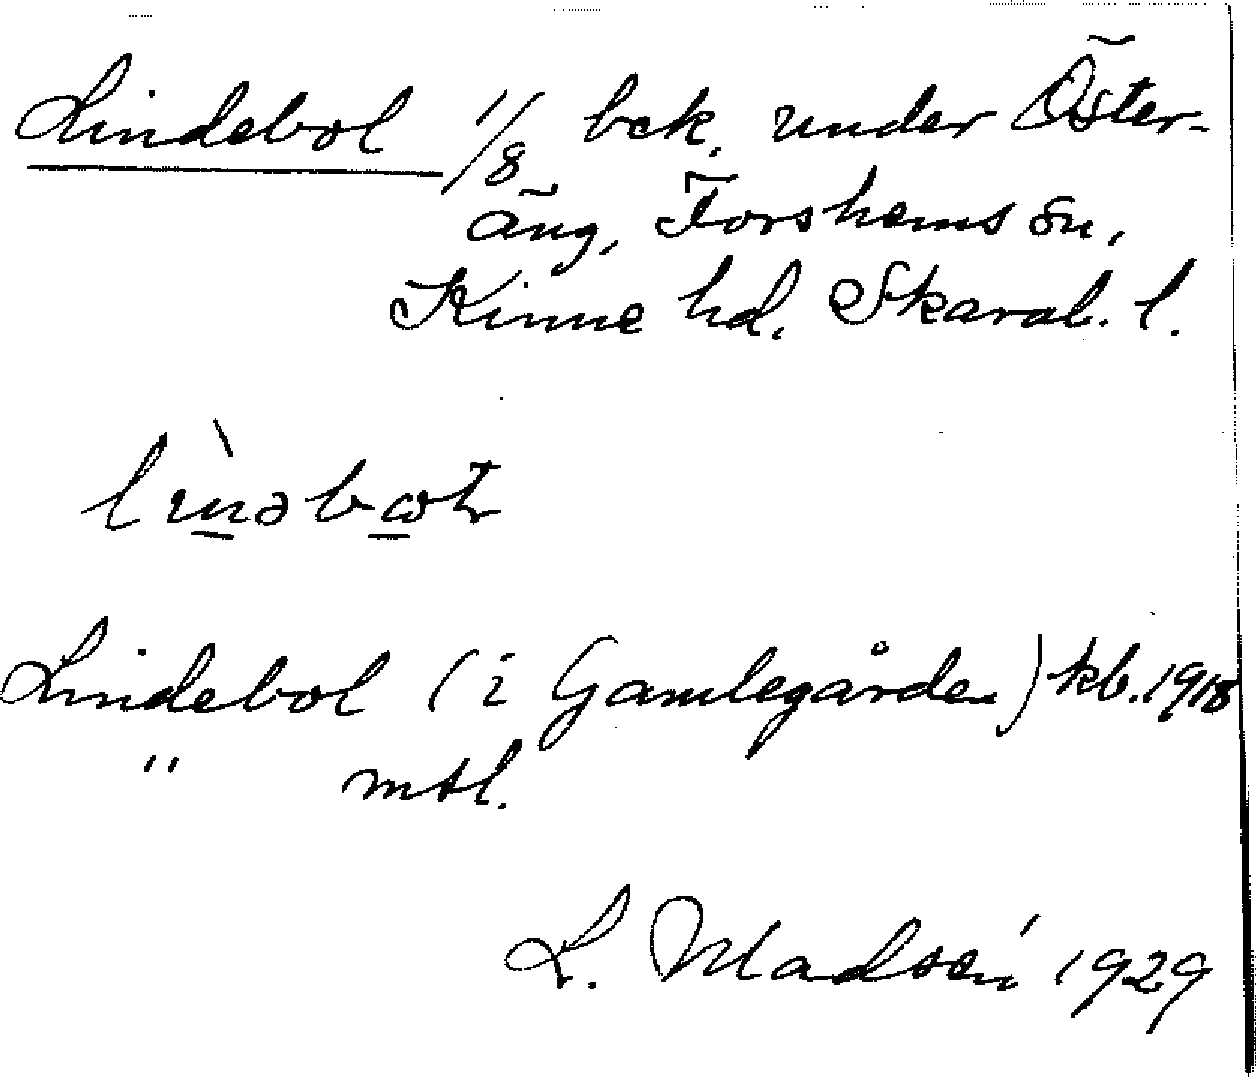 Lindebol 1/8 bek. under Öster-
äng, Forshems sn,
Kinne hd. Skarab. l.
Lindebol (i Gamlegården) kb. 1918
" mtl.
L. Madsén 1929